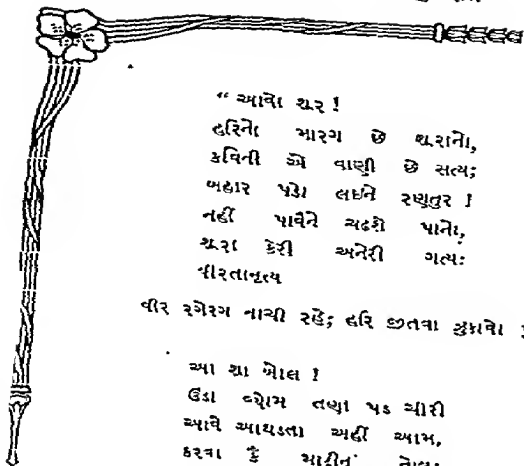 “ આવો શૂર !
હરિનો મારગ છે શૂરાનો,
કવિની એ વાણી છે સત્ય;
બહાર પડો લઇને રણતુર !
નહીં પાવૈને ચઢશે પાનો,
શૂરા કેરી અનેરી ગત્ય:
વીરતાનૃત્ય
વીર રગેરગ નાચી રહે; હરિ જીતવા ઝુકાવો
આ શા બોલ !
ઉંડા વ્યોમ તણા પડ ચીરી
આવે આથડતા અહીં આમ,
કરવા કૈં માટીનાં